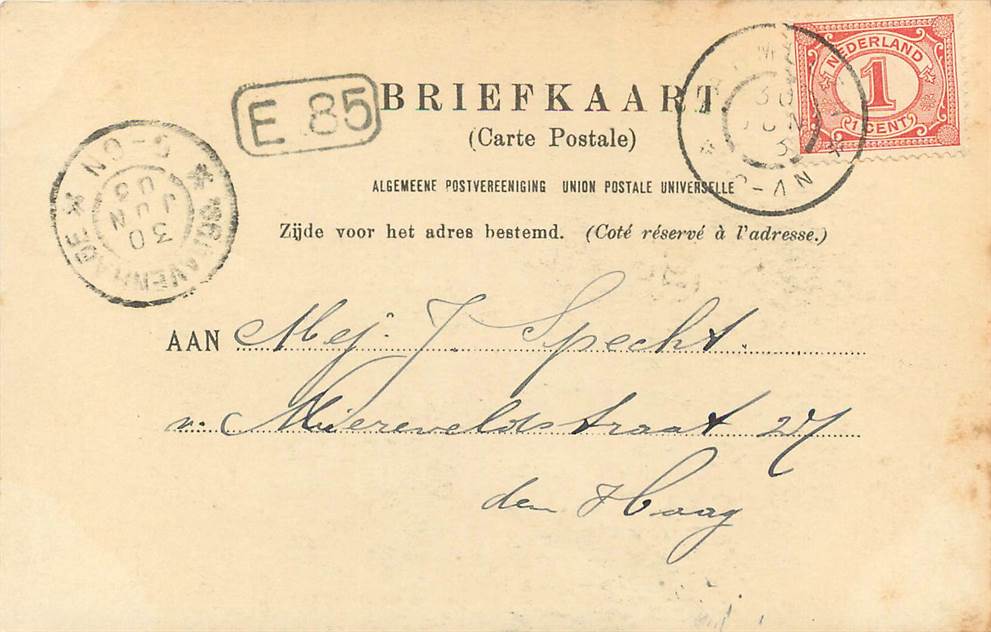 NEDERLAND
1
1 CENT
30
JUN
E 85
BRIEFKAART
(Carte Postale)
ALGEMEENE POSTVEREENIGING UNION POSTALE UNIVERSELLE
Zijde voor het adres bestemd. (Coté réservé à l'adresse.)
'SGRAVENHAGE
30
JUN
03
AAN Mej. J. Specht.
v. Miereveldstraat 27
den Haag